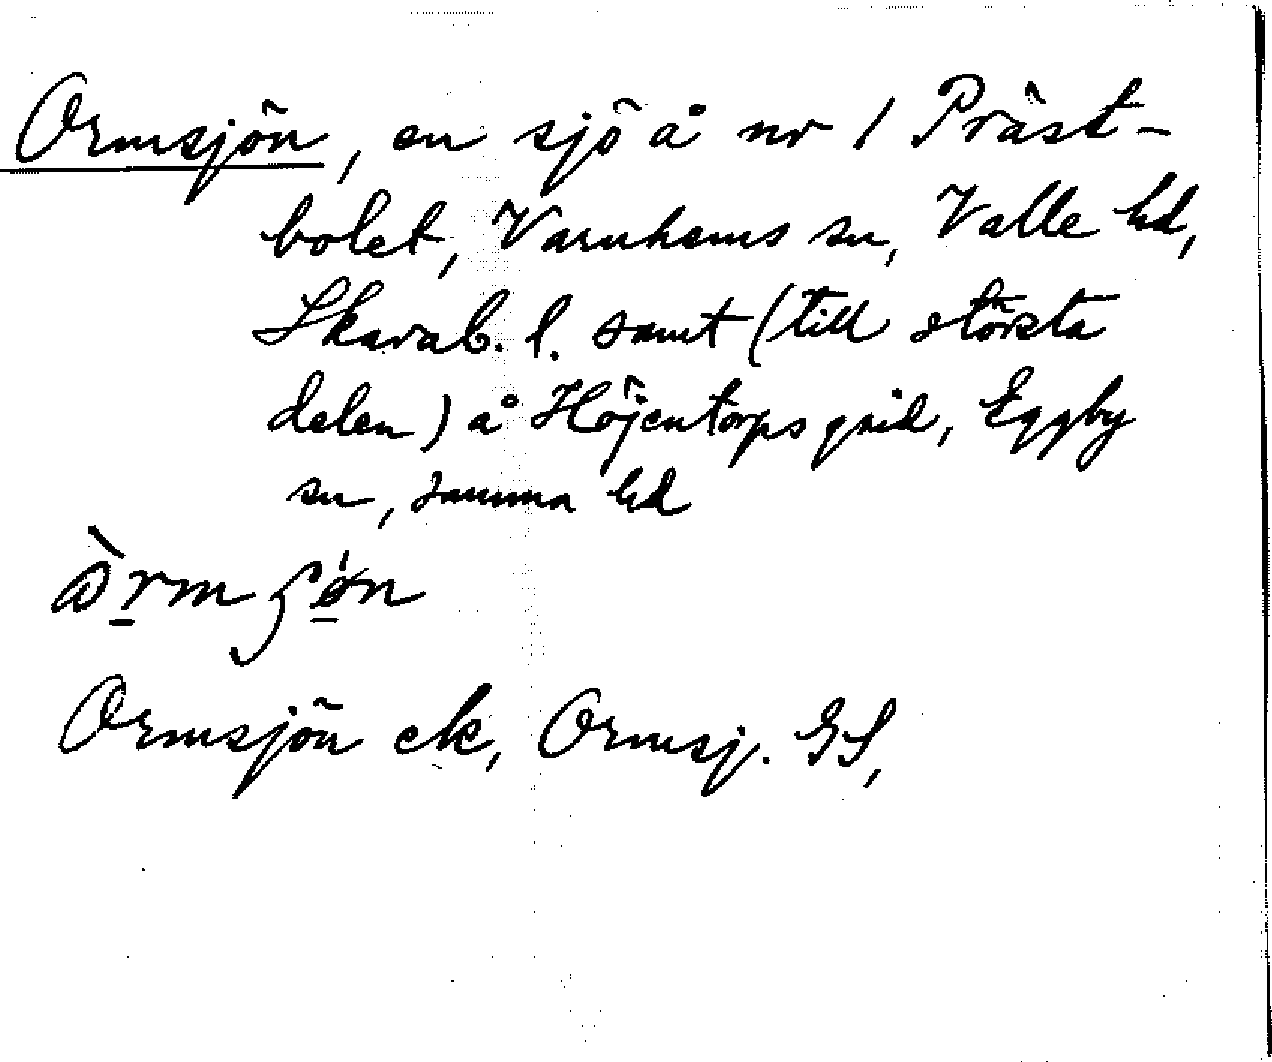 Ormsjön, en sjö å nr 1 Präst-
bolet, Varnhems sn, Valle hd,
Skarab. l. samt (till största
delen) å Höjentorps grd, Eggby
sn, samma hd
Ormsjön ek, Ormsj. GS,